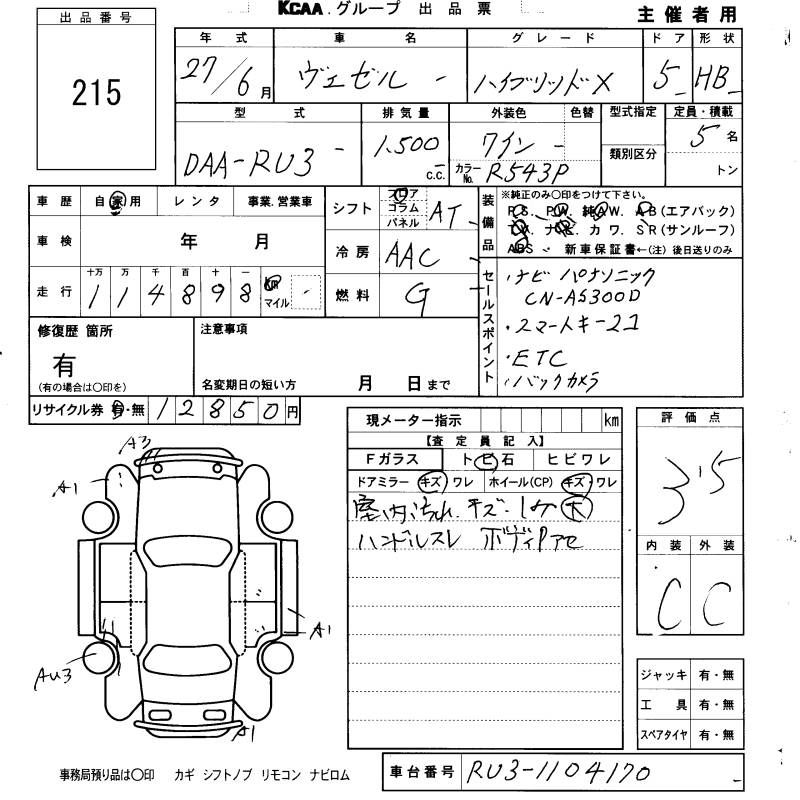 KCAA.グループ 出品票
主催者用
出品番号
215
年式 車名 グレード ドア 形状
27/6月 ヴェゼル - ハイブリッドX 5 HB
型式 排気量 外装色 色替 型式指定 定員・積載
DAA-RU3 - 1,500 c.c. ワイン - 5名
カラーNo. R543P 類別区分 トン
車歴 自家用 レンタ 事業.営業車
シフト フロア コラム パネル AT
装備品 ※純正のみ○印をつけて下さい。
P.S. P.W. 純A.W. A.B(エアバック)
T.V. ナビ. カワ. S.R(サンルーフ)
ABS 新車保証書←(注)後日送りのみ
車検 年 月
冷房 AAC
走行 十万 万 千 百 十 一
114898 km マイル -
燃料 G
セールスポイント
・ナビ パナソニック
CN-AS300D
・スマートキー2コ
・ETC
・バックカメラ
修復歴 箇所
有
(有の場合は○印を)
注意事項
名変期日の短い方 月 日まで
リサイクル券 有・無 12850円
現メーター指示 km
【査定員記入】
Fガラス トビ石 ヒビワレ
ドアミラー キズ ワレ ホイール(CP) キズ ワレ
キズ・
ハンドルスレ
評価点
3.5
内装 外装
C C
A3
A1
A1
AU3
A1
ジャッキ 有・無
工具 有・無
スペアタイヤ 有・無
事務局預り品は○印 カギ シフトノブ リモコン ナビロム
車台番号 RU3-1104170 -